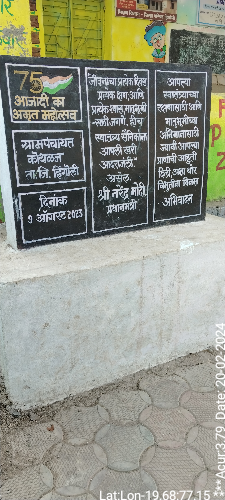 75
आज़ादी का
अमृत महोत्सव
ग्रामपंचायत
ता.जि. हिंगोली
दिनांक
९ ऑगस्ट २०२३
जीवनाचा प्रत्येक दिवस
प्रत्येक क्षण, आणि
प्रत्येक श्वास, मातृभूमीसाठी
जगणे, हीच
स्वातंत्र्य सैनिकांना
आपली खरी
आदरांजली
असेल.
श्री नरेंद्र मोदी,
प्रधानमंत्री
आपल्या
स्वातंत्र्याच्या
रक्षणासाठी आणि
मातृभूमीच्या
अभिमानासाठी
ज्यांनी आपल्या
प्राणांची आहुती
दिली, अशा वीर
विभूतींना विनम्र
अभिवादन
Lat:Lon-19.68:77.15
***Acur:3.79 Date: 20-02-2024